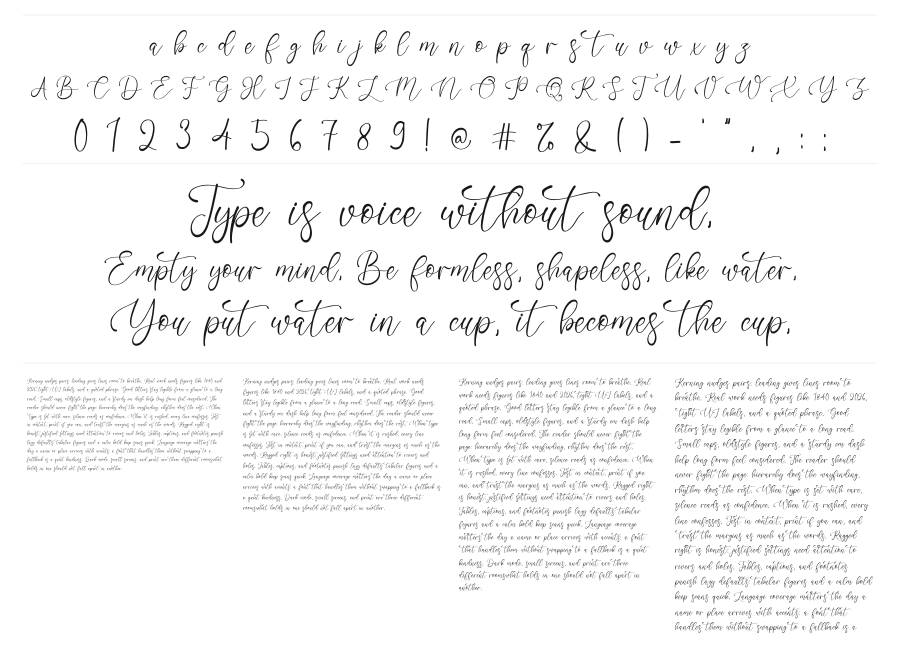 a b c d e f g h i j k l m n o p q r s t u v w x y z
A B C D E F G H I J K L M N O P Q R S T U V W X Y Z
0 1 2 3 4 5 6 7 8 9 ! @ # % & ( ) - ' " . , : ;
Type is voice without sound.
Empty your mind. Be formless, shapeless, like water.
You put water in a cup, it becomes the cup.
Kerning nudges pairs; leading gives lines room to breathe. Real work needs figures like 1840 and
2026, tight (A/V) labels, and a quoted phrase. Good letters stay legible from a glance to a long
read. Small caps, oldstyle figures, and a sturdy en dash help long form feel considered. The
reader should never fight the page: hierarchy does the wayfinding, rhythm does the rest. When
type is set with care, silence reads as confidence. When it is rushed, every line confesses. Test in
context, print if you can, and trust the margins as much as the words. Ragged right is
honest; justified settings need attention to rivers and holes. Tables, captions, and footnotes
punish lazy defaults: tabular figures and a calm bold keep sans quick. Language coverage matters the
day a name or place arrives with accents; a font that handles them without swapping to a
fallback is a quiet kindness. Dark mode, small screens, and print are three different rooms: what
holds in one should not fall apart in another.
Kerning nudges pairs; leading gives lines room to breathe. Real work needs
figures like 1840 and 2026, tight (A/V) labels, and a quoted phrase. Good
letters stay legible from a glance to a long read. Small caps, oldstyle figures,
and a sturdy en dash help long form feel considered. The reader should never
fight the page: hierarchy does the wayfinding, rhythm does the rest. When type
is set with care, silence reads as confidence. When it is rushed, every line
confesses. Test in context, print if you can, and trust the margins as much as the
words. Ragged right is honest; justified settings need attention to rivers and
holes. Tables, captions, and footnotes punish lazy defaults: tabular figures and a
calm bold keep sans quick. Language coverage matters the day a name or place
arrives with accents; a font that handles them without swapping to a fallback is
a quiet kindness. Dark mode, small screens, and print are three different
rooms: what holds in one should not fall apart in another.
Kerning nudges pairs; leading gives lines room to breathe. Real
work needs figures like 1840 and 2026, tight (A/V) labels, and a
quoted phrase. Good letters stay legible from a glance to a long
read. Small caps, oldstyle figures, and a sturdy en dash help
long form feel considered. The reader should never fight the
page: hierarchy does the wayfinding, rhythm does the rest.
When type is set with care, silence reads as confidence. When
it is rushed, every line confesses. Test in context, print if you
can, and trust the margins as much as the words. Ragged right
is honest; justified settings need attention to rivers and holes.
Tables, captions, and footnotes punish lazy defaults: tabular
figures and a calm bold keep sans quick. Language coverage
matters the day a name or place arrives with accents; a font
that handles them without swapping to a fallback is a quiet
kindness. Dark mode, small screens, and print are three
different rooms: what holds in one should not fall apart in
another.
Kerning nudges pairs; leading gives lines room to
breathe. Real work needs figures like 1840 and 2026,
tight (A/V) labels, and a quoted phrase. Good
letters stay legible from a glance to a long read.
Small caps, oldstyle figures, and a sturdy en dash
help long form feel considered. The reader should
never fight the page: hierarchy does the wayfinding,
rhythm does the rest. When type is set with care,
silence reads as confidence. When it is rushed, every
line confesses. Test in context, print if you can, and
trust the margins as much as the words. Ragged
right is honest; justified settings need attention to
rivers and holes. Tables, captions, and footnotes
punish lazy defaults: tabular figures and a calm bold
keep sans quick. Language coverage matters the day a
name or place arrives with accents; a font that
handles them without swapping to a fallback is a